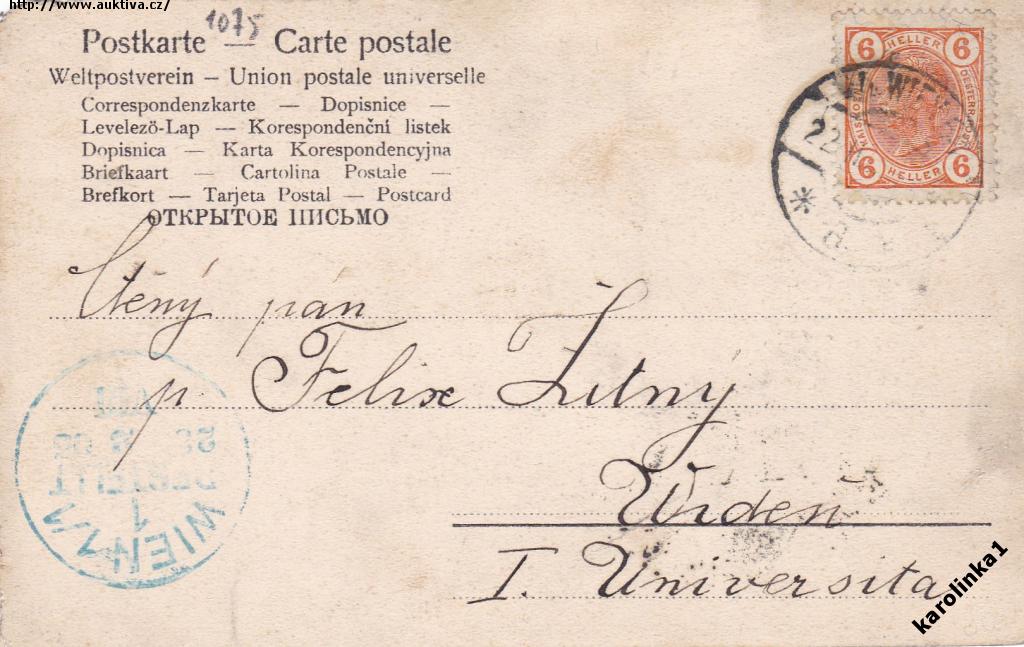 http://www.auktiva.cz/
1075
Postkarte — Carte postale
Weltpostverein – Union postale universelle
Correspondenzkarte — Dopisnice —
Levelező-Lap — Korespondenční listek
Dopisnica — Karta Korespondencyjna
Briefkaart — Cartolina Postale —
Brefkort — Tarjeta Postal — Postcard
ОТКРЫТОЕ ПИСЬМО
6 HELLER 6
6 HELLER 6
WIEN
22
Ctěný pán
p. Felix Žitný
Wíden
I. Universita
WIEN
1
BESTELLT
karolinka1